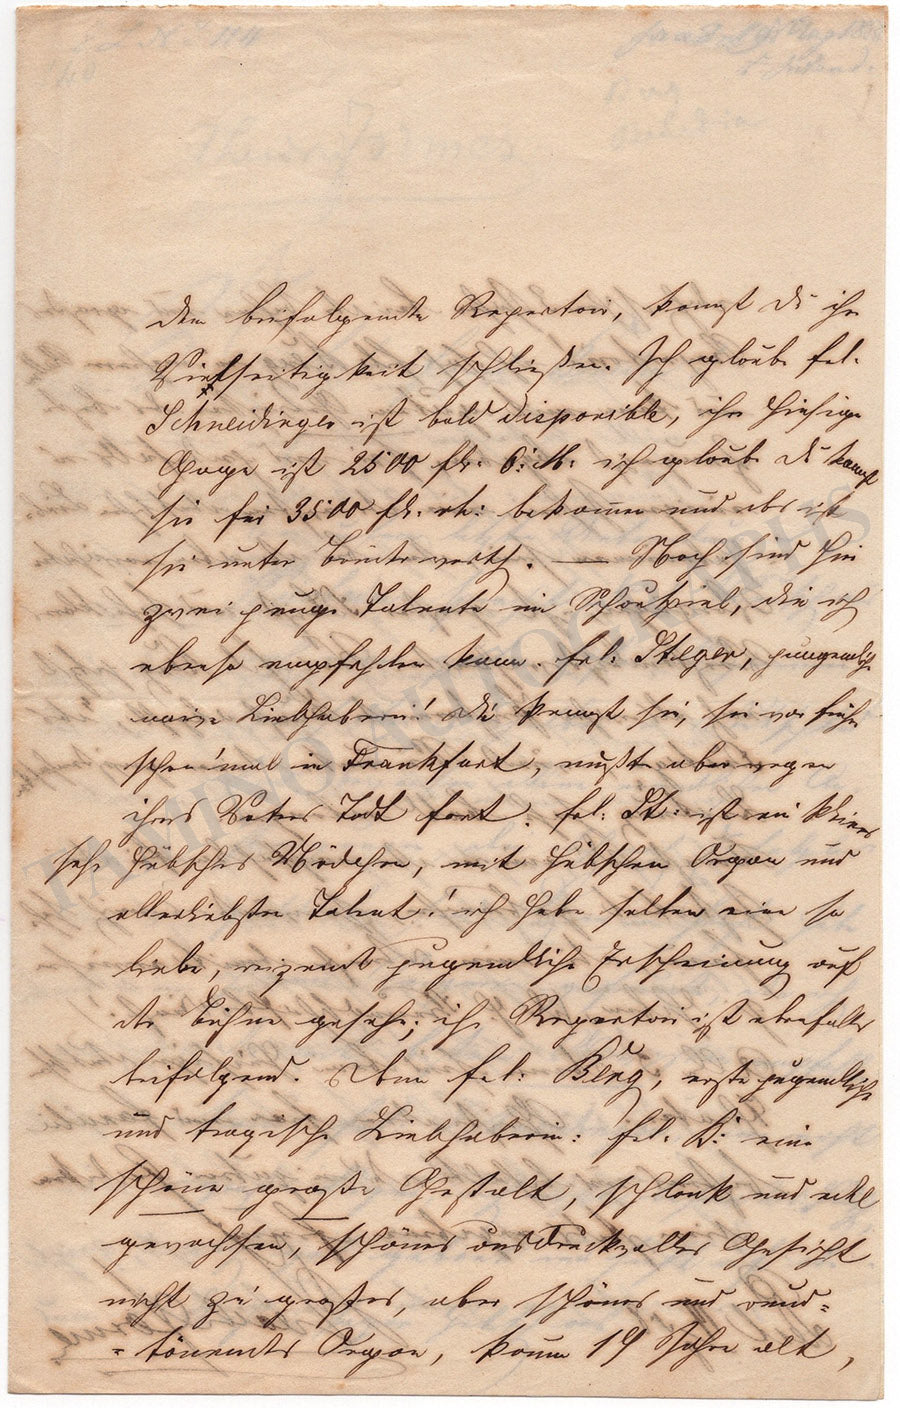 dem beifolgende Repertoir, kannst du ihre
Vielseitigkeit schließen. Ich glaube frl.
Schneidinger ist bald disponible, ihre hiesige
Gage ist 2500 fl: C: M: ich glaube du kannst
sie für 3500 fl. rh: bekommen und das ist
sie unter Brüder werth. — Noch sind hier
zwei junge Talente im Schauspiel, die ich
ebenso empfehlen kann. frl: Steger, jugendliche
naive Liebhaberin! du kennst sie, sie war früher
schon 'mal in Frankfurt, mußte aber wegen
ihres Vaters Todt fort. frl: St: ist ein kleines
sehr hübsches Mädchen, mit hübschen Organ und
allerliebsten Talent! ich habe selten eine so
liebe, reizende jugendliche Erscheinung auf
der Bühne gesehn; ihr Repertoir ist ebenfalls
beifolgend. Dann frl: Berg, erste jugendliche
und tragische Liebhaberin: frl. B: eine
schöne große Gestalt, schlank und edel
gewachsen, schönes ausdruckvolles Gesicht
nicht zu großes, aber schönes und rund=
=tönendes Organ, kaum 19 Jahre alt,